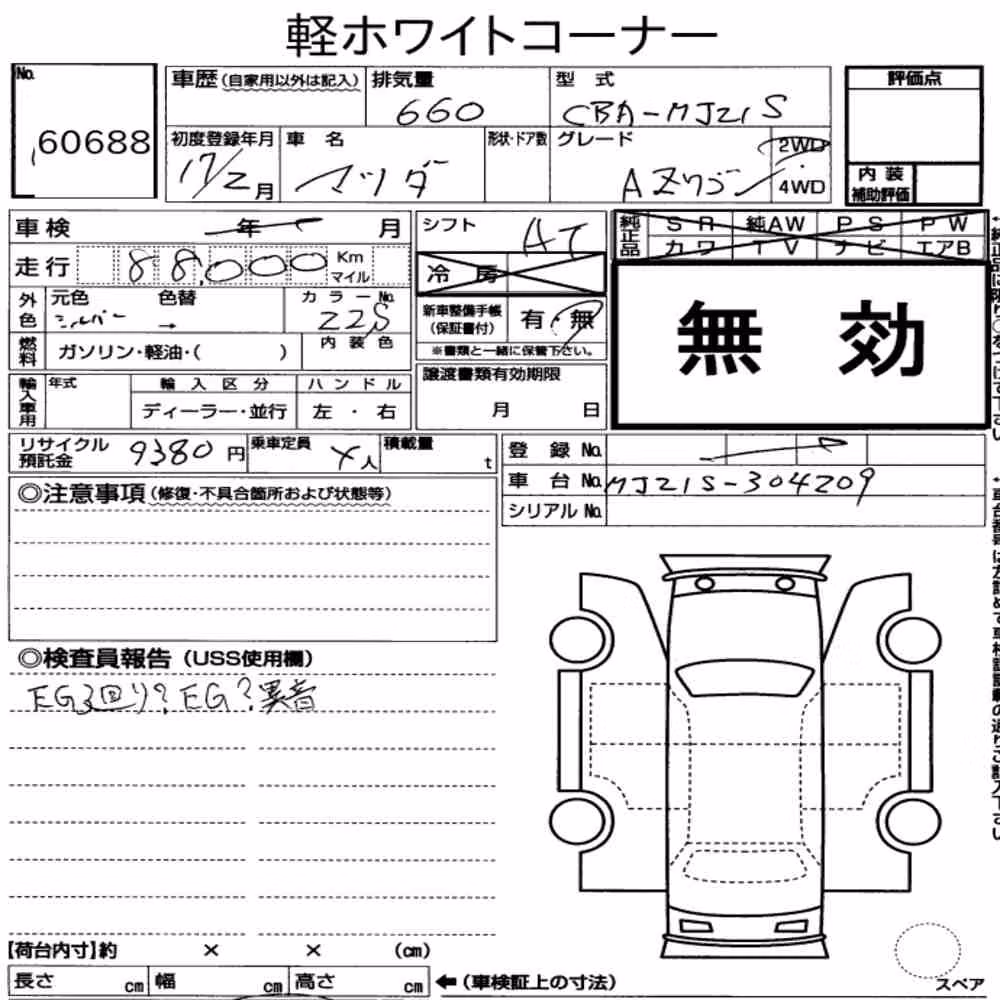 軽ホワイトコーナー
No.
60688
車歴(自家用以外は記入)
排気量
660
型 式
CBA-MJ21S
評価点
初度登録年月
17/2月
車 名
マツダ
形状・ドア数
グレード
AZワゴン
2WD
4WD
内 装
補助評価
車検 年 月
シフト
AT
純正品
SR 純AW PS PW
カワ TV ナビ エアB
走行
88,000
Km
マイル
冷 房
無 効
外色
元色
シルバー
色替
→
カラーNo.
Z2S
新車整備手帳
(保証書付)
有・無
※書類と一緒に保管下さい。
燃料
ガソリン・軽油・( )
内 装 色
譲渡書類有効期限
月 日
輸入車用
年式
輸 入 区 分
ディーラー・並行
ハ ン ド ル
左 ・ 右
リサイクル
預託金
9380円
乗車定員
4人
積載量
t
登 録 No.
車 台 No.
MJ21S-304209
シリアル No.
◎注意事項(修復・不具合箇所および状態等)
◎検査員報告(USS使用欄)
EG3回り?EG?異音
【荷台内寸】約 × × (cm)
長さ cm 幅 cm 高さ cm
←(車検証上の寸法)
スペア